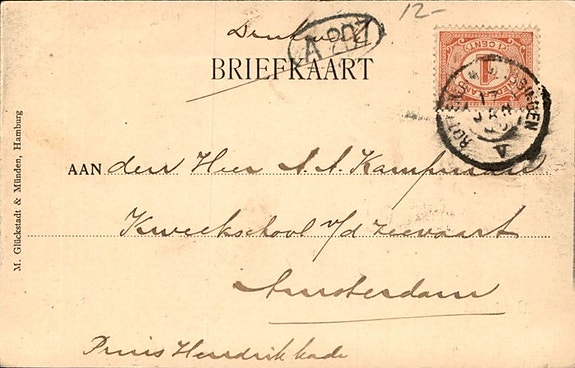 Drukwerk
12-
A 207
BRIEFKAART
1
(1 CENT)
NEDERLAND
17
JAN
A
AAN den Heer A. A. Kampman
Kweekschool v/d Zeevaart
Amsterdam
Prins Hendrikkade
M. Glückstadt & Münden, Hamburg